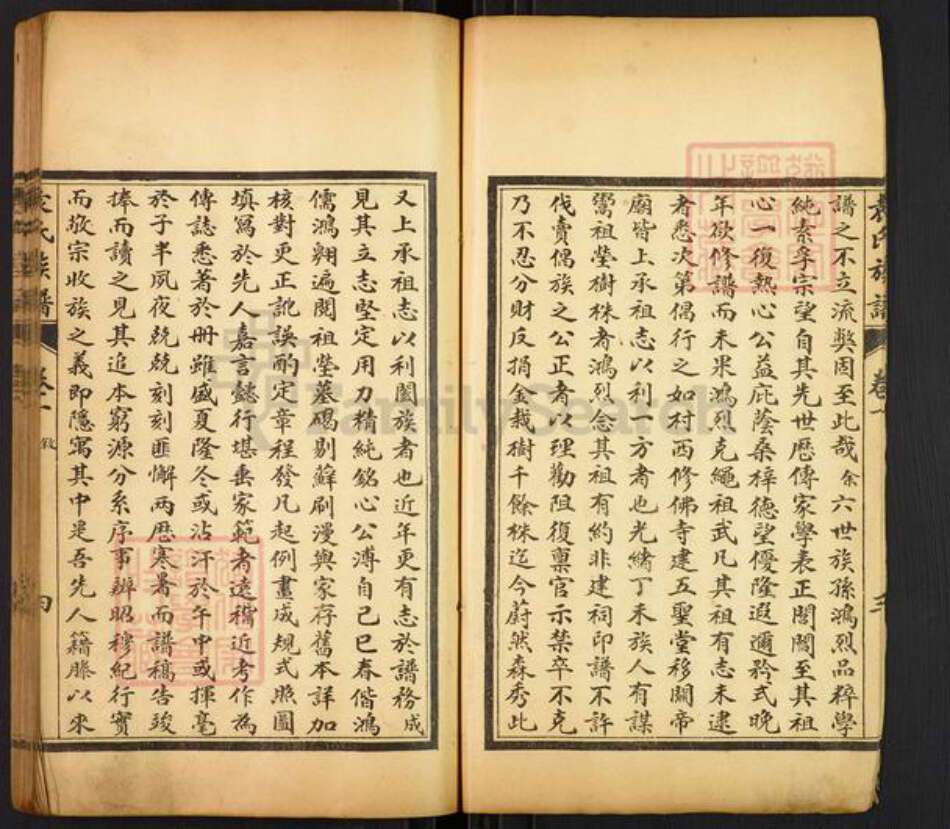 譜之不立流弊固至此哉余六世族孫鴻烈品粹學
純素孚宗望自其先世歷傳家學表正閭閻至其祖
心一復熱心公益庇蔭桑梓德望優隆遐邇矜式晚
年欲修譜而未果鴻烈克繩祖武凡其祖有志未逮
者悉次第偶行之如村西修佛寺建五聖堂移關帝
廟皆上承祖志以利一方者也光緒丁未族人有謀
鬻祖塋樹株者鴻烈念其祖有約非建祠印譜不許
伐賣偶族之公正者以理勸阻復稟官示禁卒不克
乃不忍分財反捐金栽樹千餘株迄今蔚然森秀此
又上承祖志以利闔族者也近年更有志於譜務成
見其立志堅定用力精純銘心公溥自己巳春偕鴻
儒鴻翱遍閱祖塋墓碣剔蘚刷漫與家存舊本詳加
核對更正訛誤酌定章程發凡起例畫成規式照圖
填寫於先人嘉言懿行堪垂家範者遠稽近考作為
傳誌悉著於冊雖盛夏隆冬或沾汗於午中或揮毫
於子半夙夜兢兢刻刻匪懈兩歷寒暑而譜稿告竣
捧而讀之見其追本窮源分系序事辨昭穆紀行實
而敬宗收族之義即隱寓其中是吾先人籍滕以來
氏族譜
卷一
敘
四
氏族譜
卷一
三
FamilySearch